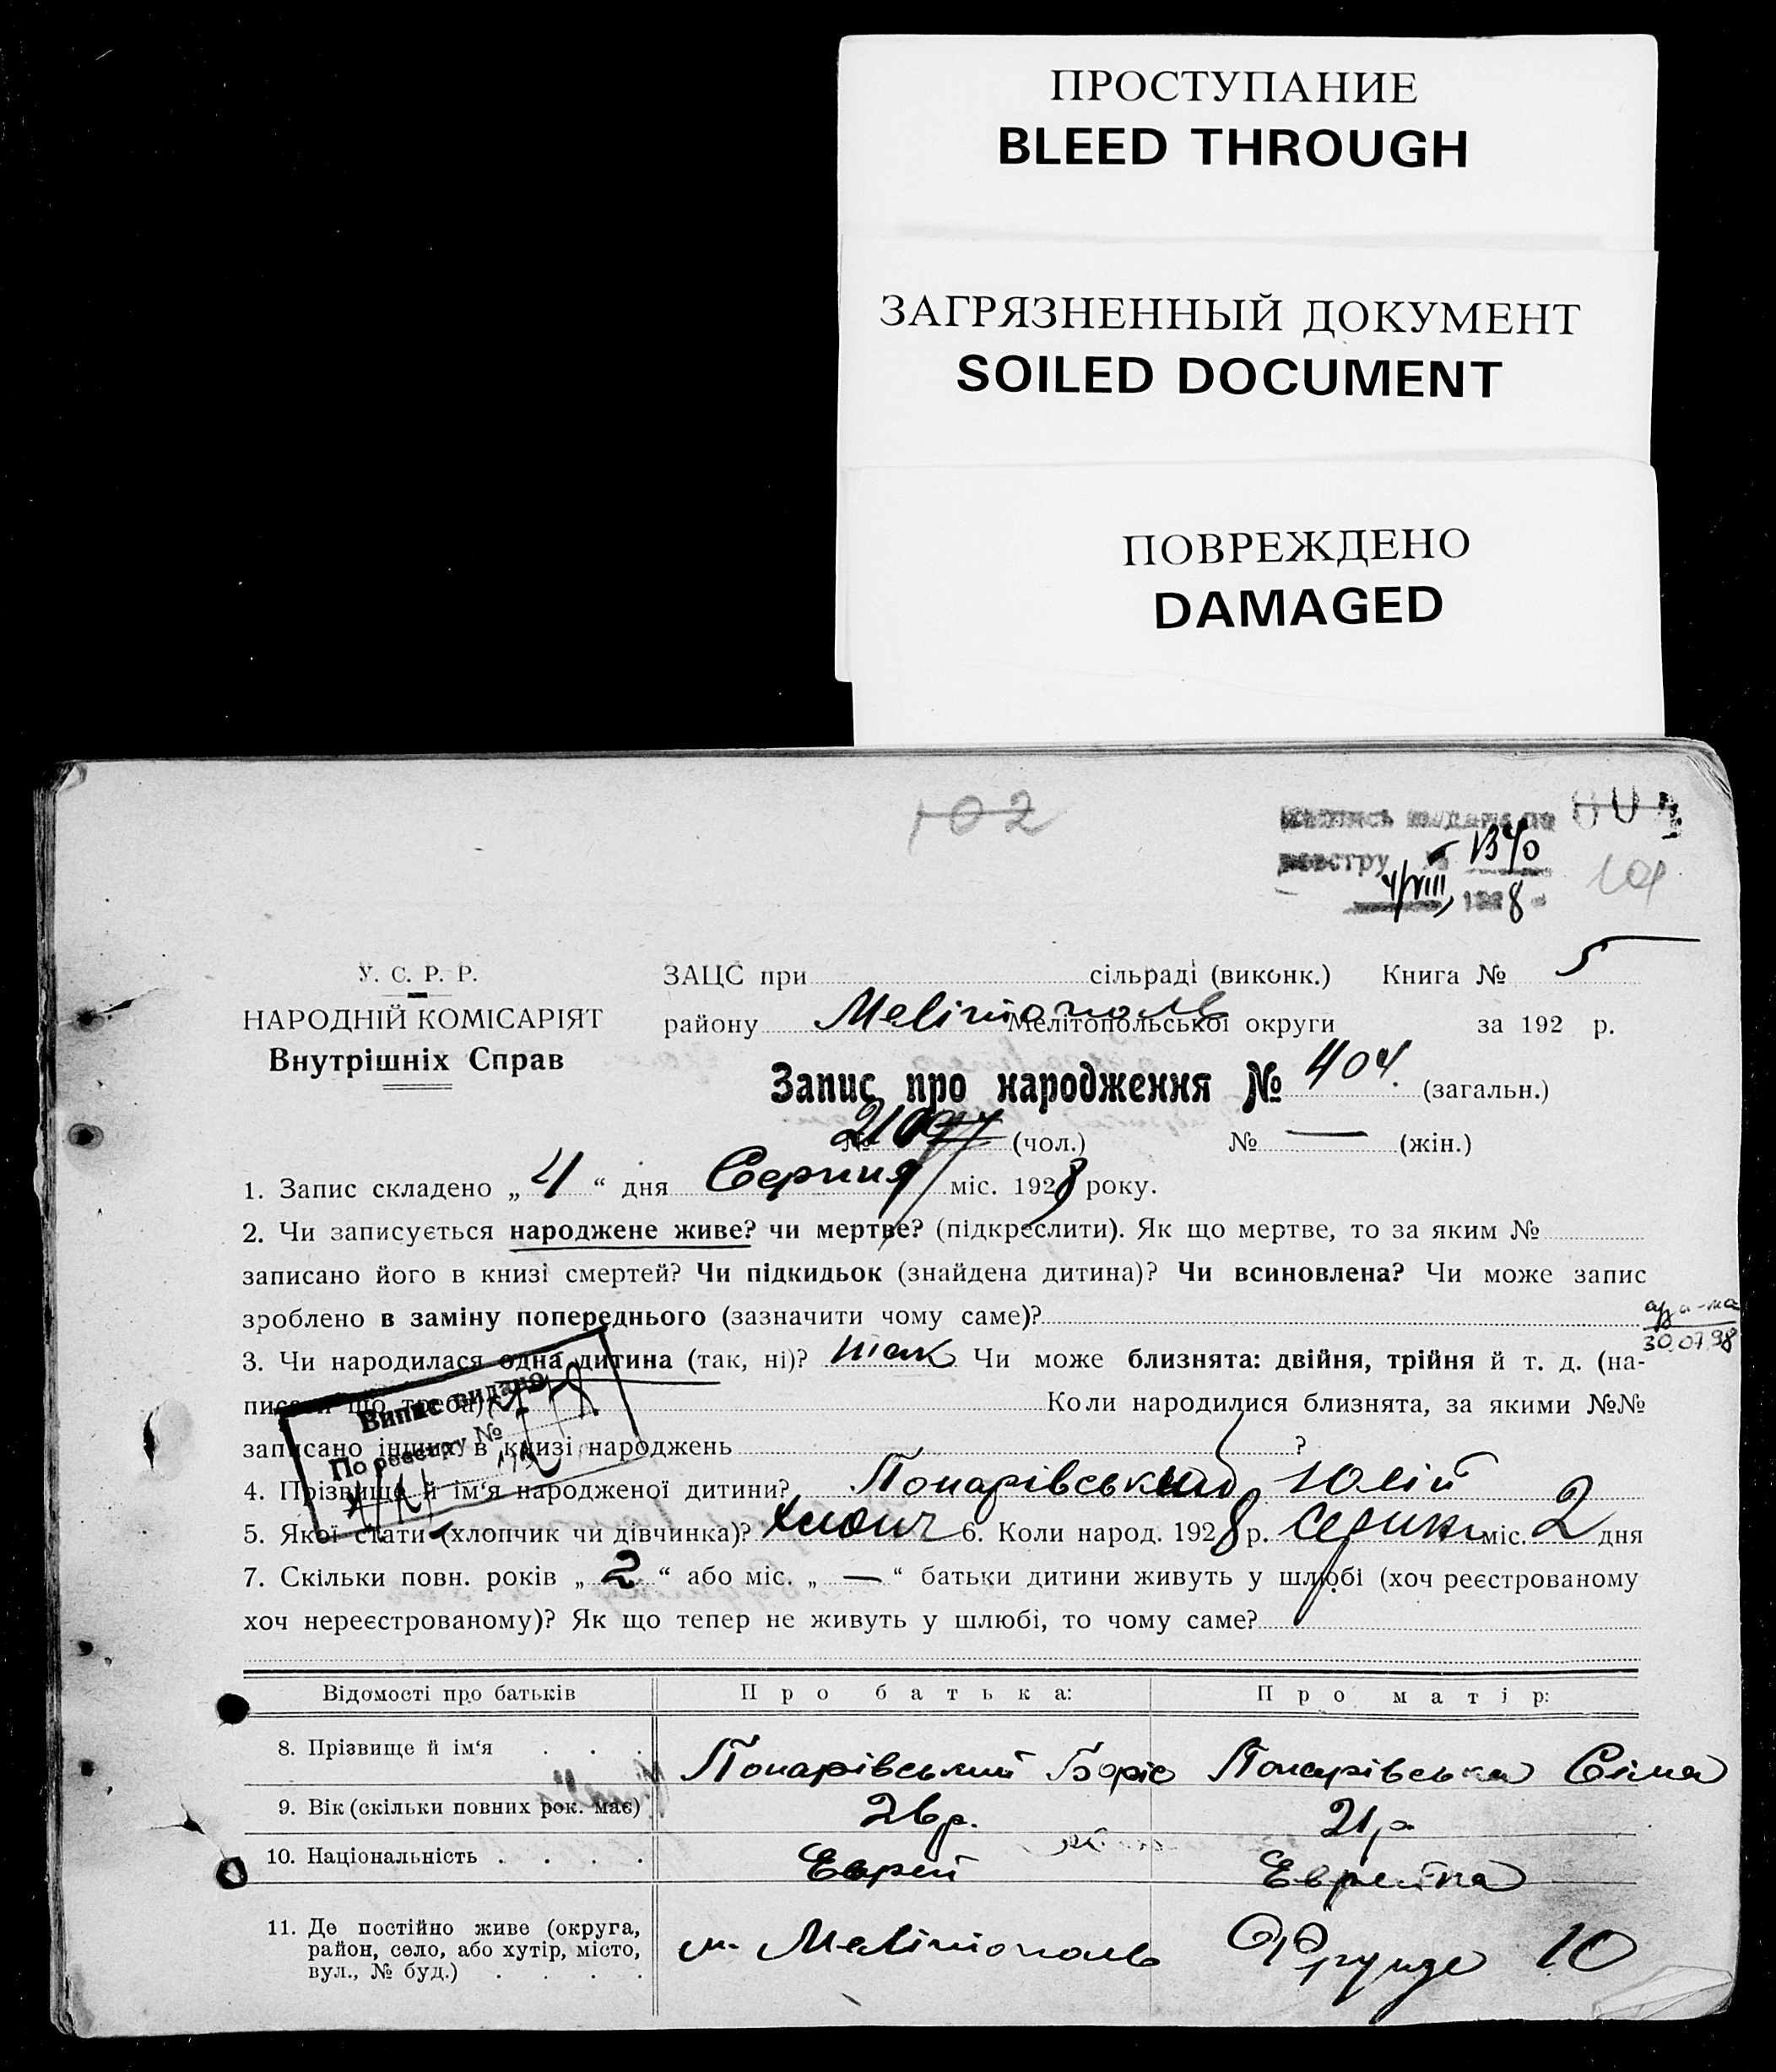 ПРОСТУПАНИЕ
BLEED THROUGH
ЗАГРЯЗНЕННЫЙ ДОКУМЕНТ
SOILED DOCUMENT
ПОВРЕЖДЕНО
DAMAGED
102
реєстру
4/VIII, 1928
У. С. Р. Р.
НАРОДНІЙ КОМІСАРІЯТ
Внутрішніх Справ
ЗАЦС при сільраді (виконк.) Книга № 5
району Мелітополь Мелітопольської округи за 192 р.
Запис про народження № 404. (загальн.)
№ 210 (чол.) № — (жін.)
1. Запис складено „ 4 “ дня Серпня міс. 1928 року.
2. Чи записується народжене живе? чи мертве? (підкреслити). Як що мертве, то за яким №
записано його в книзі смертей? Чи підкидьок (знайдена дитина)? Чи всиновлена? Чи може запис
зроблено в заміну попереднього (зазначити чому саме)?
30.07.98
3. Чи народилася одна дитина (так, ні)? так Чи може близнята: двійня, трійня й т. д. (на-
писати що треба)? Коли народилися близнята, за якими №№
записано інших в книзі народжень ?
Випис видано
По реєстру №
4. Прізвище й ім‘я народженої дитини? Понарівський Юлій
5. Якої стати (хлопчик чи дівчинка)? хлопч 6. Коли народ. 1928 р. Серпня міс. 2 дня
7. Скільки повн. років „ 2 “ або міс. „ — “ батьки дитини живуть у шлюбі (хоч реєстрованому
хоч нереєстрованому)? Як що тепер не живуть у шлюбі, то чому саме?
Відомості про батьків Про батька: Про матір:
8. Прізвище й ім‘я . . . Понарівський Боріс Понарівська Сіма
9. Вік (скільки повних рок. має) 26 р. 21 р
10. Національність . . . . Еврей Еврейка
11. Де постійно живе (округа,
район, село, або хутір, місто,
вул., № буд.) . . . .
м. Мелітополь Фрунзе 10